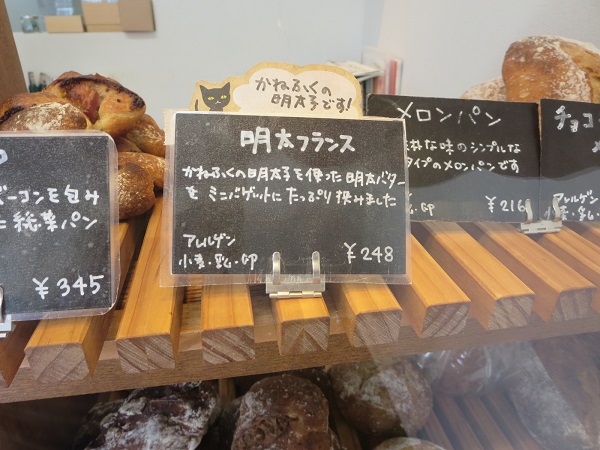 かねふくの
明太子です!
明太フランス
かねふくの明太子を使った明太バター
を ミニバゲットにたっぷり挟みました
アレルゲン
小麦・乳・卵
¥248
ベーコンを包み
惣菜パン
¥345
メロンパン
素朴な味のシンプルな
タイプのメロンパンです
乳・卵
¥216
チョコ
アレルゲン
小麦・乳